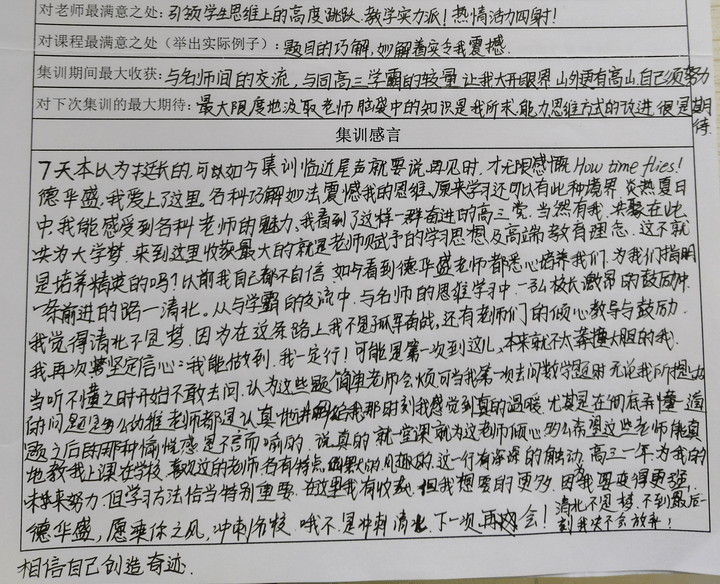 对老师最满意之处：引领学生思维上的高度跳跃.教学实力派！热情活力四射！
对课程最满意之处（举出实际例子）：题目的巧解，妙解着实令我震撼.
集训期间最大收获：与名师间的交流，与同高三学霸的较量 让我大开眼界 山外更有高山，自己须努力
对下次集训的最大期待：最大限度地汲取老师脑袋中的知识是我所求，能力思维方式的改进 很是期待
集训感言
7天本以为挺长的，可以如今集训临近尾声就要说再见时，才无限感慨 How time flies！
德华盛，我爱上了这里。各科巧解妙法震憾我的思维、原来学习还可以有此种境界 炎热夏日
中，我能感受到各科老师的魅力，我看到了这样一群奋进的高三党，当然有我，共聚在此，
共为大学梦，来到这里收获最大的就是老师赋予的学习思想及高端教育理念，这不就
是培养精英的吗？以前我自己都不自信 如今看到德华盛老师都悉心培养我们，为我们指明
一条前进的路—清北。从与学霸的交流中，与名师的思维学习中 弘校长激昂的鼓励中
我觉得清北不是梦，因为在这条路上我不是孤军奋战，还有老师们的倾心教导与鼓励.
我再次坚定信心：我能做到，我一定行！可能是第一次到这儿，本来就不太大胆的我
当听不懂之时开始不敢去问，认为这些题简单老师会烦 可当我第一次去问数学题时 无论我所提出
的问题是多么幼稚老师都是认真地讲解给我 那时刻我感觉到真的温暖 尤其是在彻底弄懂一道
题之后的那种愉悦感是不言而喻的，说真的 就一堂课就为这老师倾心的 希望这些老师能真
地教我上课在学校，喜欢这的老师各有特点，幽默的，风趣的，这一行有深深的触动，高三一年，为我的
未来努力 但学习方法恰当特别重要，在这里我有收获，但我想要的更多，因为我要变得更强，
德华盛，愿乘你之风，冲刺名校，哦不，是冲刺清北，下一次再会！清北不是梦，不到最后一
刻我决不会放弃！
相信自己创造奇迹.